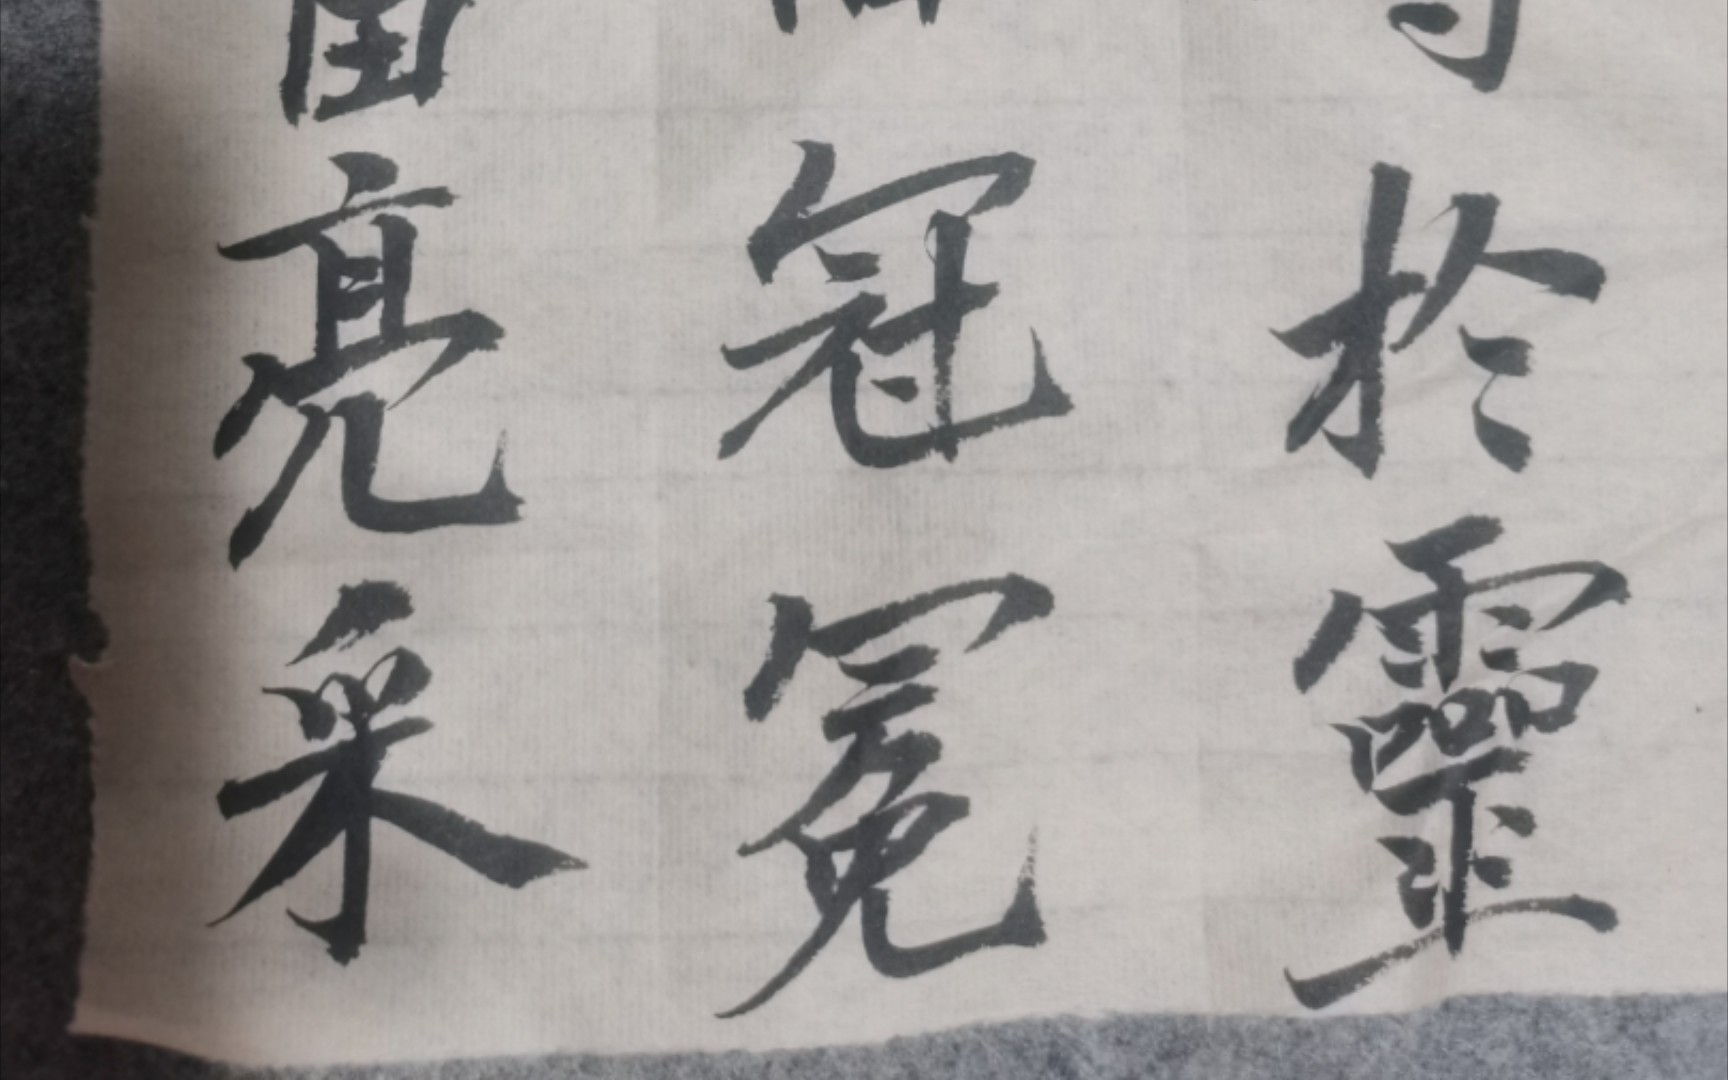 於靈
冠冕
亮采